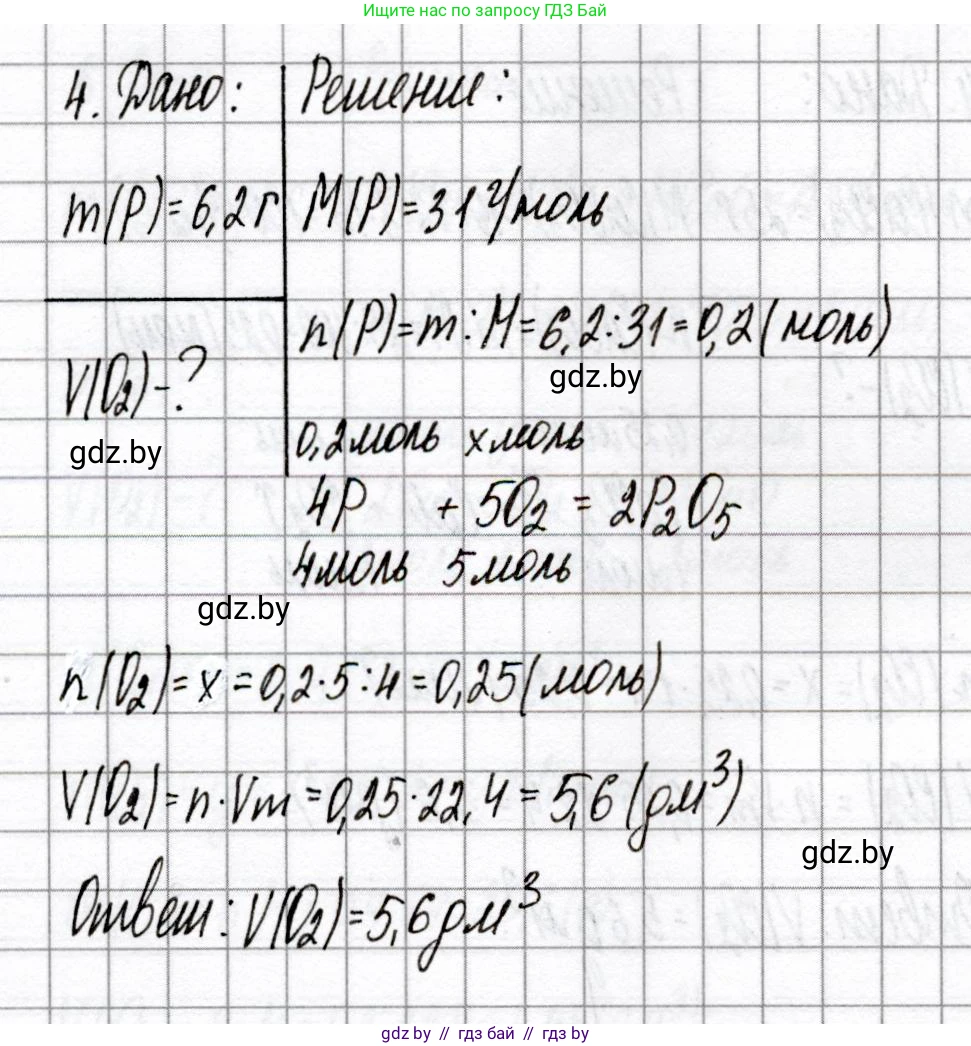 Ищите нас по запросу ГДЗ Бай
4. Дано:
Решение:
m(P)=6,2г
M(P)=31 г/моль
n(P)=m:M=6,2:31=0,2(моль)
gdz.by
V(O₂)-?
gdz.by
0,2моль xмоль
4P + 5O₂ = 2P₂O₅
4моль 5моль
gdz.by
n(O₂)=x=0,2·5:4=0,25(моль)
V(O₂)=n·Vm=0,25·22,4=5,6(дм³)
gdz.by
Ответ: V(O₂)=5,6дм³
gdz.by // гдз бай // gdz.by